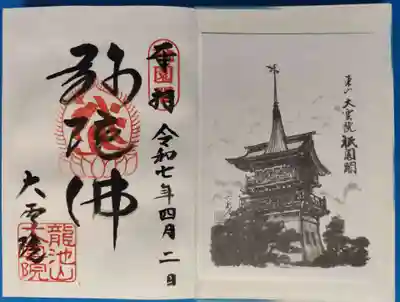 奉拝
令和七年四月二日
弥陀佛
大雲院
龍池山
大雲院
東山大雲院祇園閣